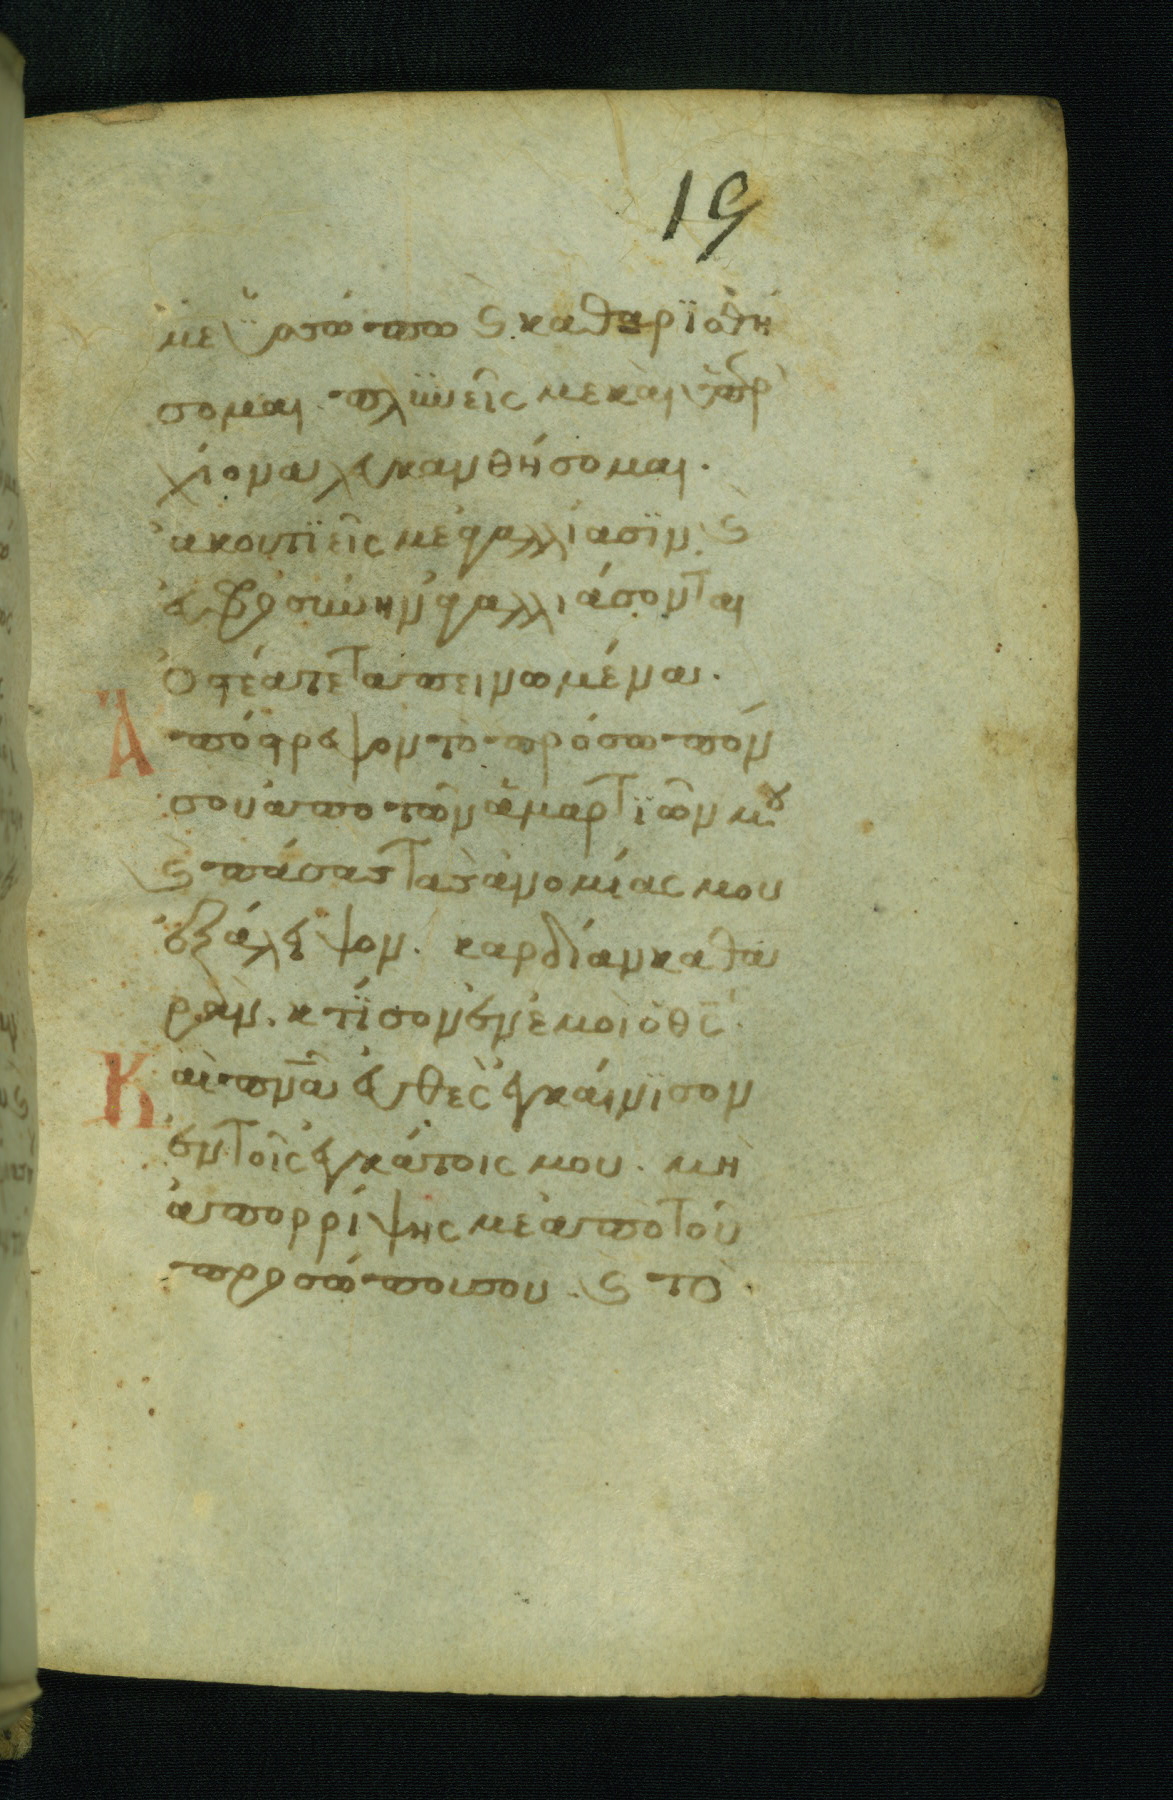 19
με ὑσσώπω ϗ καθαρϊσθή
σομαι. πλϋνεῖς με καὶ ὑπὲρ
χιόνα λευκανθήσομαι.
ἀκουτϊεῖς με ἀγαλλίασϊν ϗ
εὐφροσύνην ἀγαλλιάσονται
ὀστέα τεταπεινωμένα.
Ἀπόστρεψον το πρόσωπόν
σου ἀπο τῶν ἁμαρτϊῶν μου
ϗ πάσας τὰς ἀνομίας μου
ἐξάλειψον. καρδίαν καθα
ρὰν. κτϊσον ἐν ἐμοὶ ὁ θς
Καὶ πνα εὐθὲς ἐγκαίνϊσον
ἐν τοῖς ἐγκάτοις μου. μη
ἀπορρίψης με ἀπο τοῦ
προσώποι σου. ϗ το